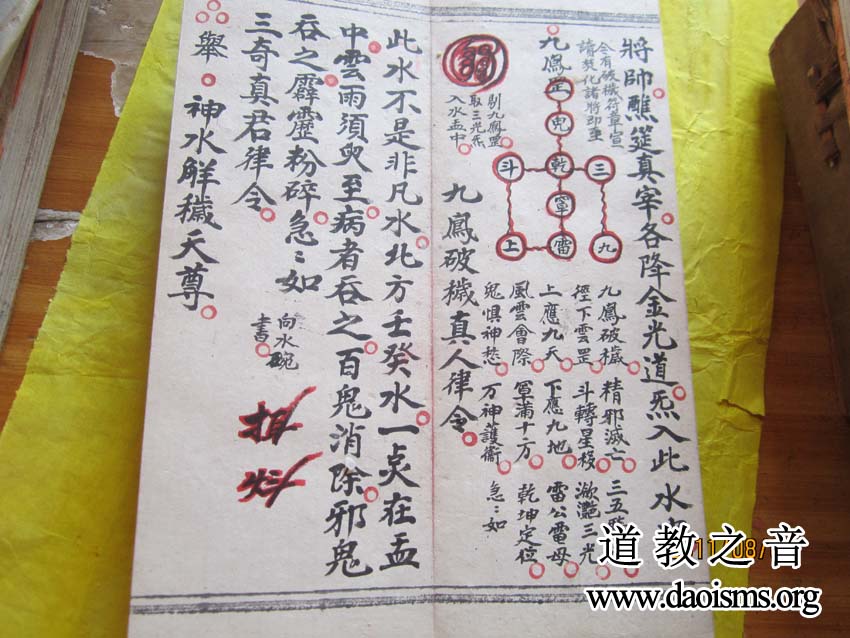 將帥醮筵真宰各降金光道炁入此水
有破穢符章宣
請焚化諸將即
九鳳罡
兜
斗 乾 三
罩
上 雷 九
九鳳破穢。精邪滅亡。三五
徑下雲罡。斗轉星移。瀲灧三光
上應九天。下應九地。雷公雷母
風雲會際。罩浦十方。乾坤定位
鬼惧神愁。万神護衛。急〻如
九鳳破穢真人律令。
剔九鳳罡
取三光炁
入水盂中
此水不是非凡水。北方壬癸水。一点在盂
中雲雨須臾至。病者吞之。百鬼消除。邪鬼
吞之霹靂粉碎。急〻如
三奇真君律令。
舉。神水解穢天尊。
向水碗
書
道教之音
www.daoisms.org